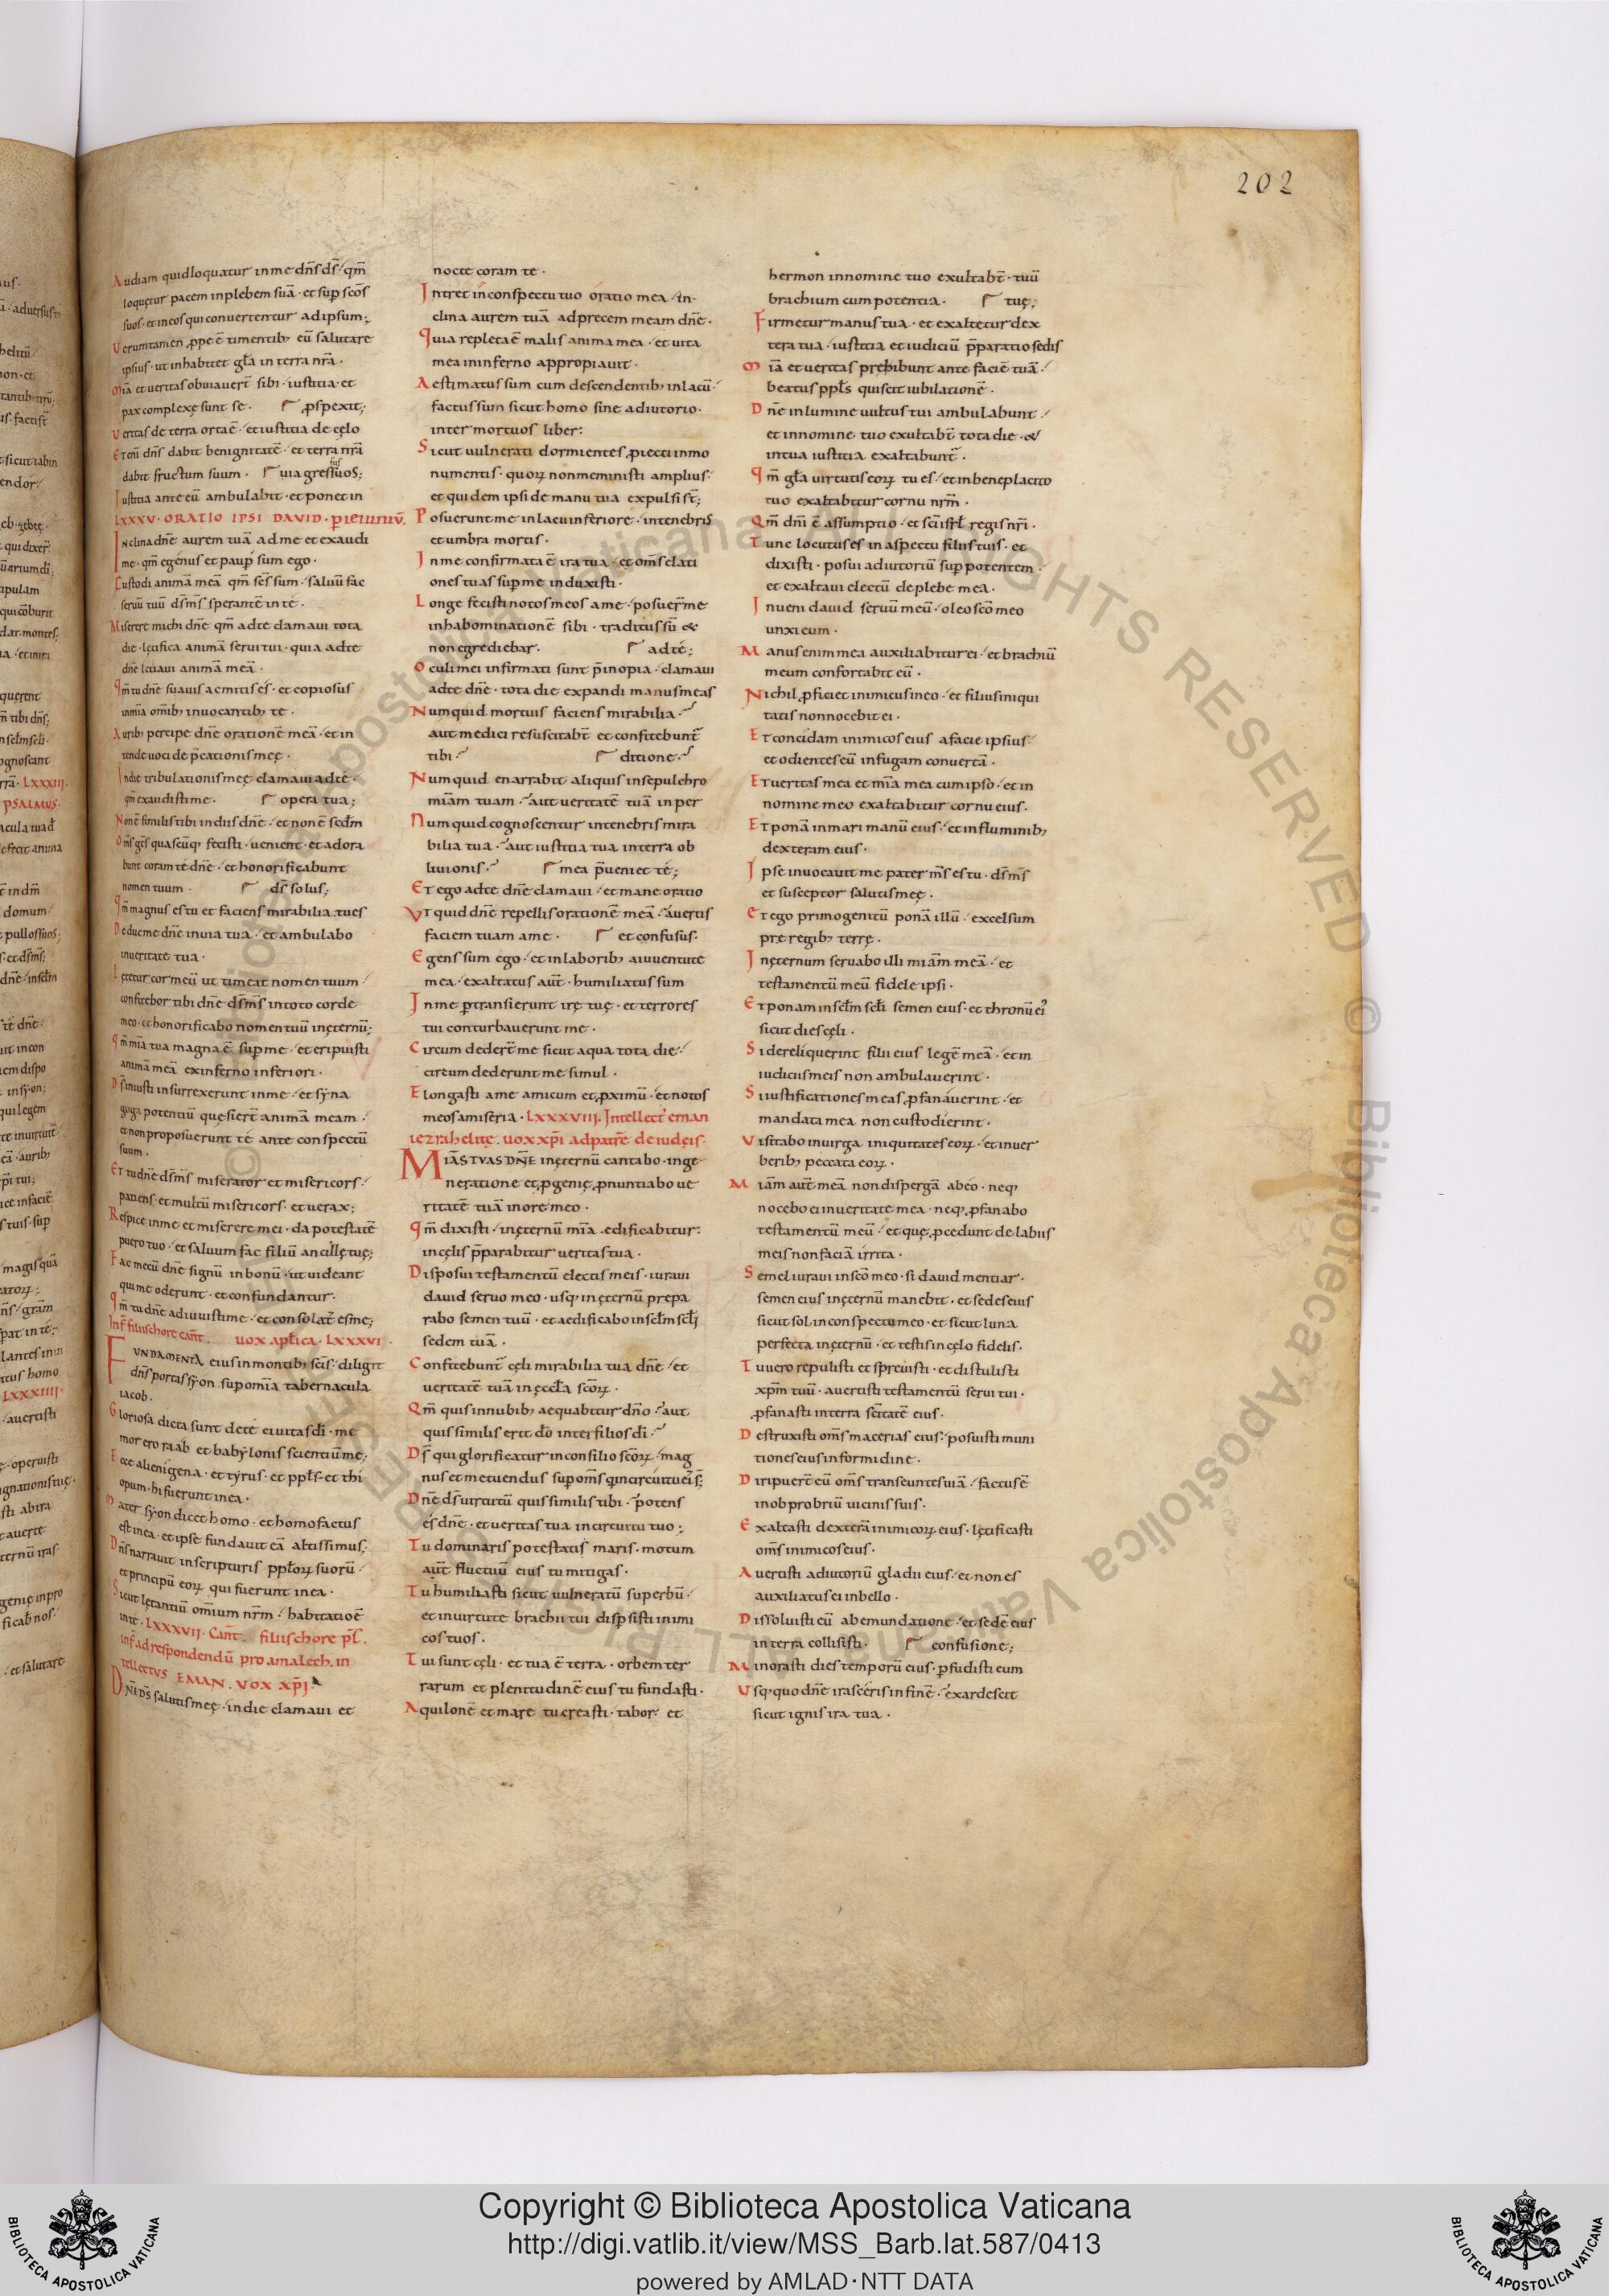 202
Audiam quid loquatur in me dn̄s ds̄ · qm̄
loquetur pacem in plebem suā · et sup scōs
suos · et in eos qui convertentur ad ipsum ;
Verumtamen ꝓpe ē timentib; eū salutare
ipsius · ut inhabitet gl̄a in terra nr̄a ·
Mīa et veritas obviavert̄ sibi · iustitia · et
pax complexę sunt se · ꝓspexit ;
Veritas de terra orta ē · et iustitia de cęlo
Etenī dn̄s dabit benignitatē · et terra nr̄a
dabit fructum suum · via gressus suos ;
Iustitia ante eū ambulabit · et ponet in
LXXXV · ORATIO IPSI DAVID · P ieiuniū ·
Inclina dn̄e aurem tuā ad me et exaudi
me · qm̄ egenus et paup sum ego ·
Custodi animā meā qm̄ scs̄ sum · salvū fac
servū tuū ds̄ ms̄ sperantē in te ·
Miserere michi dn̄e qm̄ ad te clamavi tota
die · lętifica animā servi tui · quia ad te
dn̄e levavi animā meā ·
Qm̄ tu dn̄e suavis ac mitis es · et copiosus
in mīa om̄ib; invocantib; te ·
Aurib; percipe dn̄e orationē meā · et in
tende voci dep̄cationis meę ·
In die tribulationis meę clamavi ad te ·
qm̄ exaudisti me · opera tua ;
Non ē similis tibi in diis dn̄e · et non ē sedm̄
Om̄s gēs quascūq; fecisti · venient · et adora
bunt coram te dn̄e · et honorificabunt
nomen tuum · ds̄ solus ;
Qm̄ magnus es tu et faciens mirabilia tu es
Deduc me dn̄e in via tua · et ambulabo
in veritate tua ·
Lętetur cor meū ut timeat nomen tuum ·
confitebor tibi dn̄e ds̄ ms̄ in toto corde
meo · et honorificabo nomen tuū in ęternū ;
Qm̄ mīa tua magna ē sup me · et eripuisti
animā meā ex inferno inferiori ·
Ds̄ iniusti insurrexerunt in me · et syna
goga potentiū quęsiert̄ animā meam ·
et non proposuerunt te ante conspectū
suum ·
Et tu dn̄e ds̄ ms̄ miserator et misericors ·
patiens · et multū misericors · et verax ;
Respice in me et miserere mei · da potestatē
puero tuo · et salvum fac filiū ancillę tuę ;
Fac mecū dn̄e signū in bonū · ut videant
qui me oderunt · et confundantur ·
Qm̄ tu dn̄e adiuvisti me · et consolat̄ es me ;
Inf̄ filiis chore cant̄ · vox apl̄ica · LXXXVI ·
FUNDAMENTA eius in montib; scīs · diligit
dn̄s portas syon sup om̄ia tabernacula
iacob ·
Gloriosa dicta sunt de te civitas dī · me
mor ero raab et babylonis scientiū me ;
Ecce alienigena · et tyrus · et ppl̄s · et thi
opum · hi fuerunt in ea ·
Mater syon dicet homo · et homo factus
est in ea · et ipse fundavit eā altissimus ;
Dn̄s narravit in scripturis ppl̄oꝝ suorū ·
et principū eoꝝ qui fuerunt in ea ·
Sicut lętantiū om̄ium nrm̄ · habitatio ē
in te · LXXXVII · Cant̄ · filiis chore ps̄l ·
inf̄ ad respondendū pro amalech · in
tellectus EMAN · VOX XP̄I ·
DN̄E DS̄ salutis meę · in die clamavi et
nocte coram te ·
Intret in conspectu tuo oratio mea · in
clina aurem tuā ad precem meam dn̄e ·
Quia repleta ē malis anima mea · et vita
mea in inferno appropiavit ·
Aestimatus sum cum descendentib; in lacū ·
factus sum sicut homo sine adiutorio ·
inter mortuos liber :
Sicut vulnerati dormientes ꝓiecti in mo
numentis · quoꝝ non meministi amplius ·
et quidem ipsi de manu tua expulsi st̄ ;
Posuerunt me in lacu inferiore · in tenebris
et umbra mortis ·
In me confirmata ē ira tua · et om̄s elati
ones tuas sup me induxisti ·
Longe fecisti notos meos a me · posuer̄ me
in habominationē sibi · traditus sū &
non egrediebar · ad te ;
Oculi mei infirmati sunt p̄ inopia · clamavi
ad te dn̄e · tota die expandi manus meas
Numquid mortuis faciens mirabilia ·
aut medici resuscitabt̄ et confitebunt̄
tibi · ditione ·
Numquid enarrabit aliquis in sepulchro
mīam tuam · aut veritatē tuā in per
Numquid cognoscentur in tenebris mira
bilia tua · aut iustitia tua in terra ob
livionis · mea p̄veniet te ;
Et ego ad te dn̄e clamavi · et mane oratio
Ut quid dn̄e repellis orationē meā · avertis
faciem tuam a me · et confusus ·
Egens sum ego · et in laborib; a iuventute
mea · exaltatus aut̄ · humiliatus sum
In me ptransierunt irę tuę · et terrores
tui conturbaverunt me ·
Circum dedert̄ me sicut aqua tota die ·
circum dederunt me simul ·
Elongasti a me amicum et ꝓximū · et notos
meos a miseria · LXXXVIII · Intellect' eman
iezrahelitę · vox xpī ad patrē de iudęis ·
MIĀS TUAS DN̄E in ęternū cantabo · in ge
neratione et ꝓgenię ꝓnuntiabo ve
ritatē tuā in ore meo ·
Qm̄ dixisti · in ęternū mīa ędificabitur ·
in cęlis p̄parabitur veritas tua ·
Disposui testamentū electis meis · iuravi
david servo meo · usq; in ęternū prepa
rabo semen tuū · et aedificabo in sclm̄ sclī
sedem tuā ·
Confitebunt̄ cęli mirabilia tua dn̄e · et
veritatē tuā in ęccl̄a scōꝝ ·
Qm̄ quis in nubib; aequabitur dn̄o · aut
quis similis erit dō inter filios dī ·
Ds̄ qui glorificatur in consilio scōꝝ · mag
nus et metuendus sup om̄s q in circuitu ei' s̄ ;
Dn̄e ds̄ virtutū quis similis tibi · potens
es dn̄e · et veritas tua in circuitu tuo ;
Tu dominaris potestatis maris · motum
aut̄ fluctuū eius tu mitigas ·
Tu humiliasti sicut vulneratū superbū ·
et in virtute brachii tui dispsisti inimi
cos tuos ·
Tui sunt cęli · et tua ē terra · orbem ter
rarum et plenitudinē eius tu fundasti ·
Aquilonē et mare tu creasti · tabor · et
hermon in nomine tuo exultabt̄ · tuū
brachium cum potentia · tuę ;
Firmetur manus tua · et exaltetur dex
tera tua · iustitia et iudiciū p̄paratio sedis
Mīa et veritas pręhibunt ante faciē tuā ·
beatus ppl̄s qui scit iubilationē ·
Dn̄e in lumine vultus tui ambulabunt ·
et in nomine tuo exultabt̄ tota die · &
in tua iustitia exaltabunt̄ ·
Qm̄ gl̄a virtutis eoꝝ tu es · et in beneplacito
tuo exaltabitur cornu nrm̄ ·
Qm̄ dnī ē assumptio · et scī isrl̄ regis nrī ·
Tunc locutus es in aspectu filiis tuis · et
dixisti · posui adiutoriū sup potentem ·
et exaltavi electū de plebe mea ·
Inveni david servū meū · oleo scō meo
unxi eum ·
Manus enim mea auxiliabitur ei · et brachiū
meum confortabit eū ·
Nichil ꝓficiet inimicus in eo · et filius iniqui
tatis non nocebit ei ·
Et concidam inimicos eius a facie ipsius ·
et odientes eū in fugam convertā ·
Et veritas mea et mīa mea cum ipso · et in
nomine meo exaltabitur cornu eius ·
Et ponā in mari manū eius · et in fluminib;
dexteram eius ·
Ipse invocavit me pater ms̄ es tu · ds̄ ms̄
et susceptor salutis meę ·
Et ego primogenitū ponā illū · excelsum
pre regib; terrę ·
In ęternum servabo illi mīam meā · et
testamentū meū fidele ipsi ·
Et ponam in sclm̄ sclī semen eius · et thronū ei'
sicut dies cęli ·
Si dereliquerint filii eius legē meā · et in
iudiciis meis non ambulaverint ·
Si iustificationes meas ꝓfanaverint · et
mandata mea non custodierint ·
Visitabo in virga iniquitates eoꝝ · et in ver
berib; peccata eoꝝ ·
Mīam aut̄ meā non dispergā ab eo · neq;
nocebo ei in veritate mea · neq; ꝓfanabo
testamentū meū · et quę ꝓcedunt de labiis
meis non faciā irrita ·
Semel iuravi in scō meo · si david mentiar ·
semen eius in ęternū manebit · et sedes eius
sicut sol in conspectu meo · et sicut luna
perfecta in ęternū · et testis in cęlo fidelis ·
Tu vero repulisti et sprevisti · et distulisti
xpm̄ tuū · avertisti testamentū servi tui ·
ꝓfanasti in terra scītatē eius ·
Destruxisti om̄s macerias eius · posuisti muni
tiones eius in formidine ·
Diripuert̄ eū om̄s transeuntes viā · factus ē
in obprobriū vicinis suis ·
Exaltasti dexterā inimicoꝝ eius · lętificasti
om̄s inimicos eius ·
Avertisti adiutoriū gladii eius · et non es
auxiliatus ei in bello ·
Dissolvisti eū ab emundatione · et sedē eius
in terra collisisti · confusione ;
Minorasti dies temporū eius · pfudisti eum
Usq; quo dn̄e irasceris in finē · exardescit
sicut ignis ira tua ·
Copyright © Biblioteca Apostolica Vaticana
http://digi.vatlib.it/view/MSS_Barb.lat.587/0413
powered by AMLAD·NTT DATA